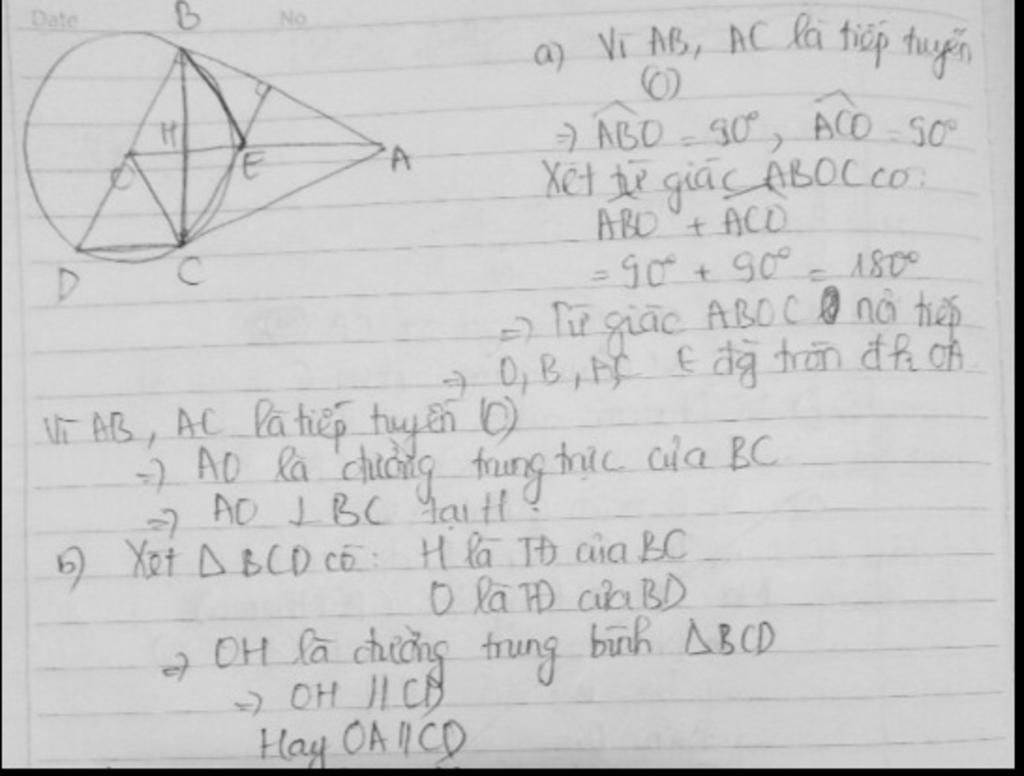 Date
No
B
H
O
E
A
D
C
a) Vì AB, AC là tiếp tuyến
(O)
=> ABO = 90°, ACO = 90°
Xét tứ giác ABOC có:
ABO + ACO
= 90° + 90° = 180°
=> Tứ giác ABOC nội tiếp
=> O, B, A, C E đg tròn đk OA
Vì AB, AC là tiếp tuyến (O)
=> AO là đường trung trực của BC
=> AO ⊥ BC tại H.
b) Xét Δ BCD có: H là TĐ của BC
O là TĐ của BD
=> OH là đường trung bình ΔBCD
=> OH // CD
Hay OA // CD